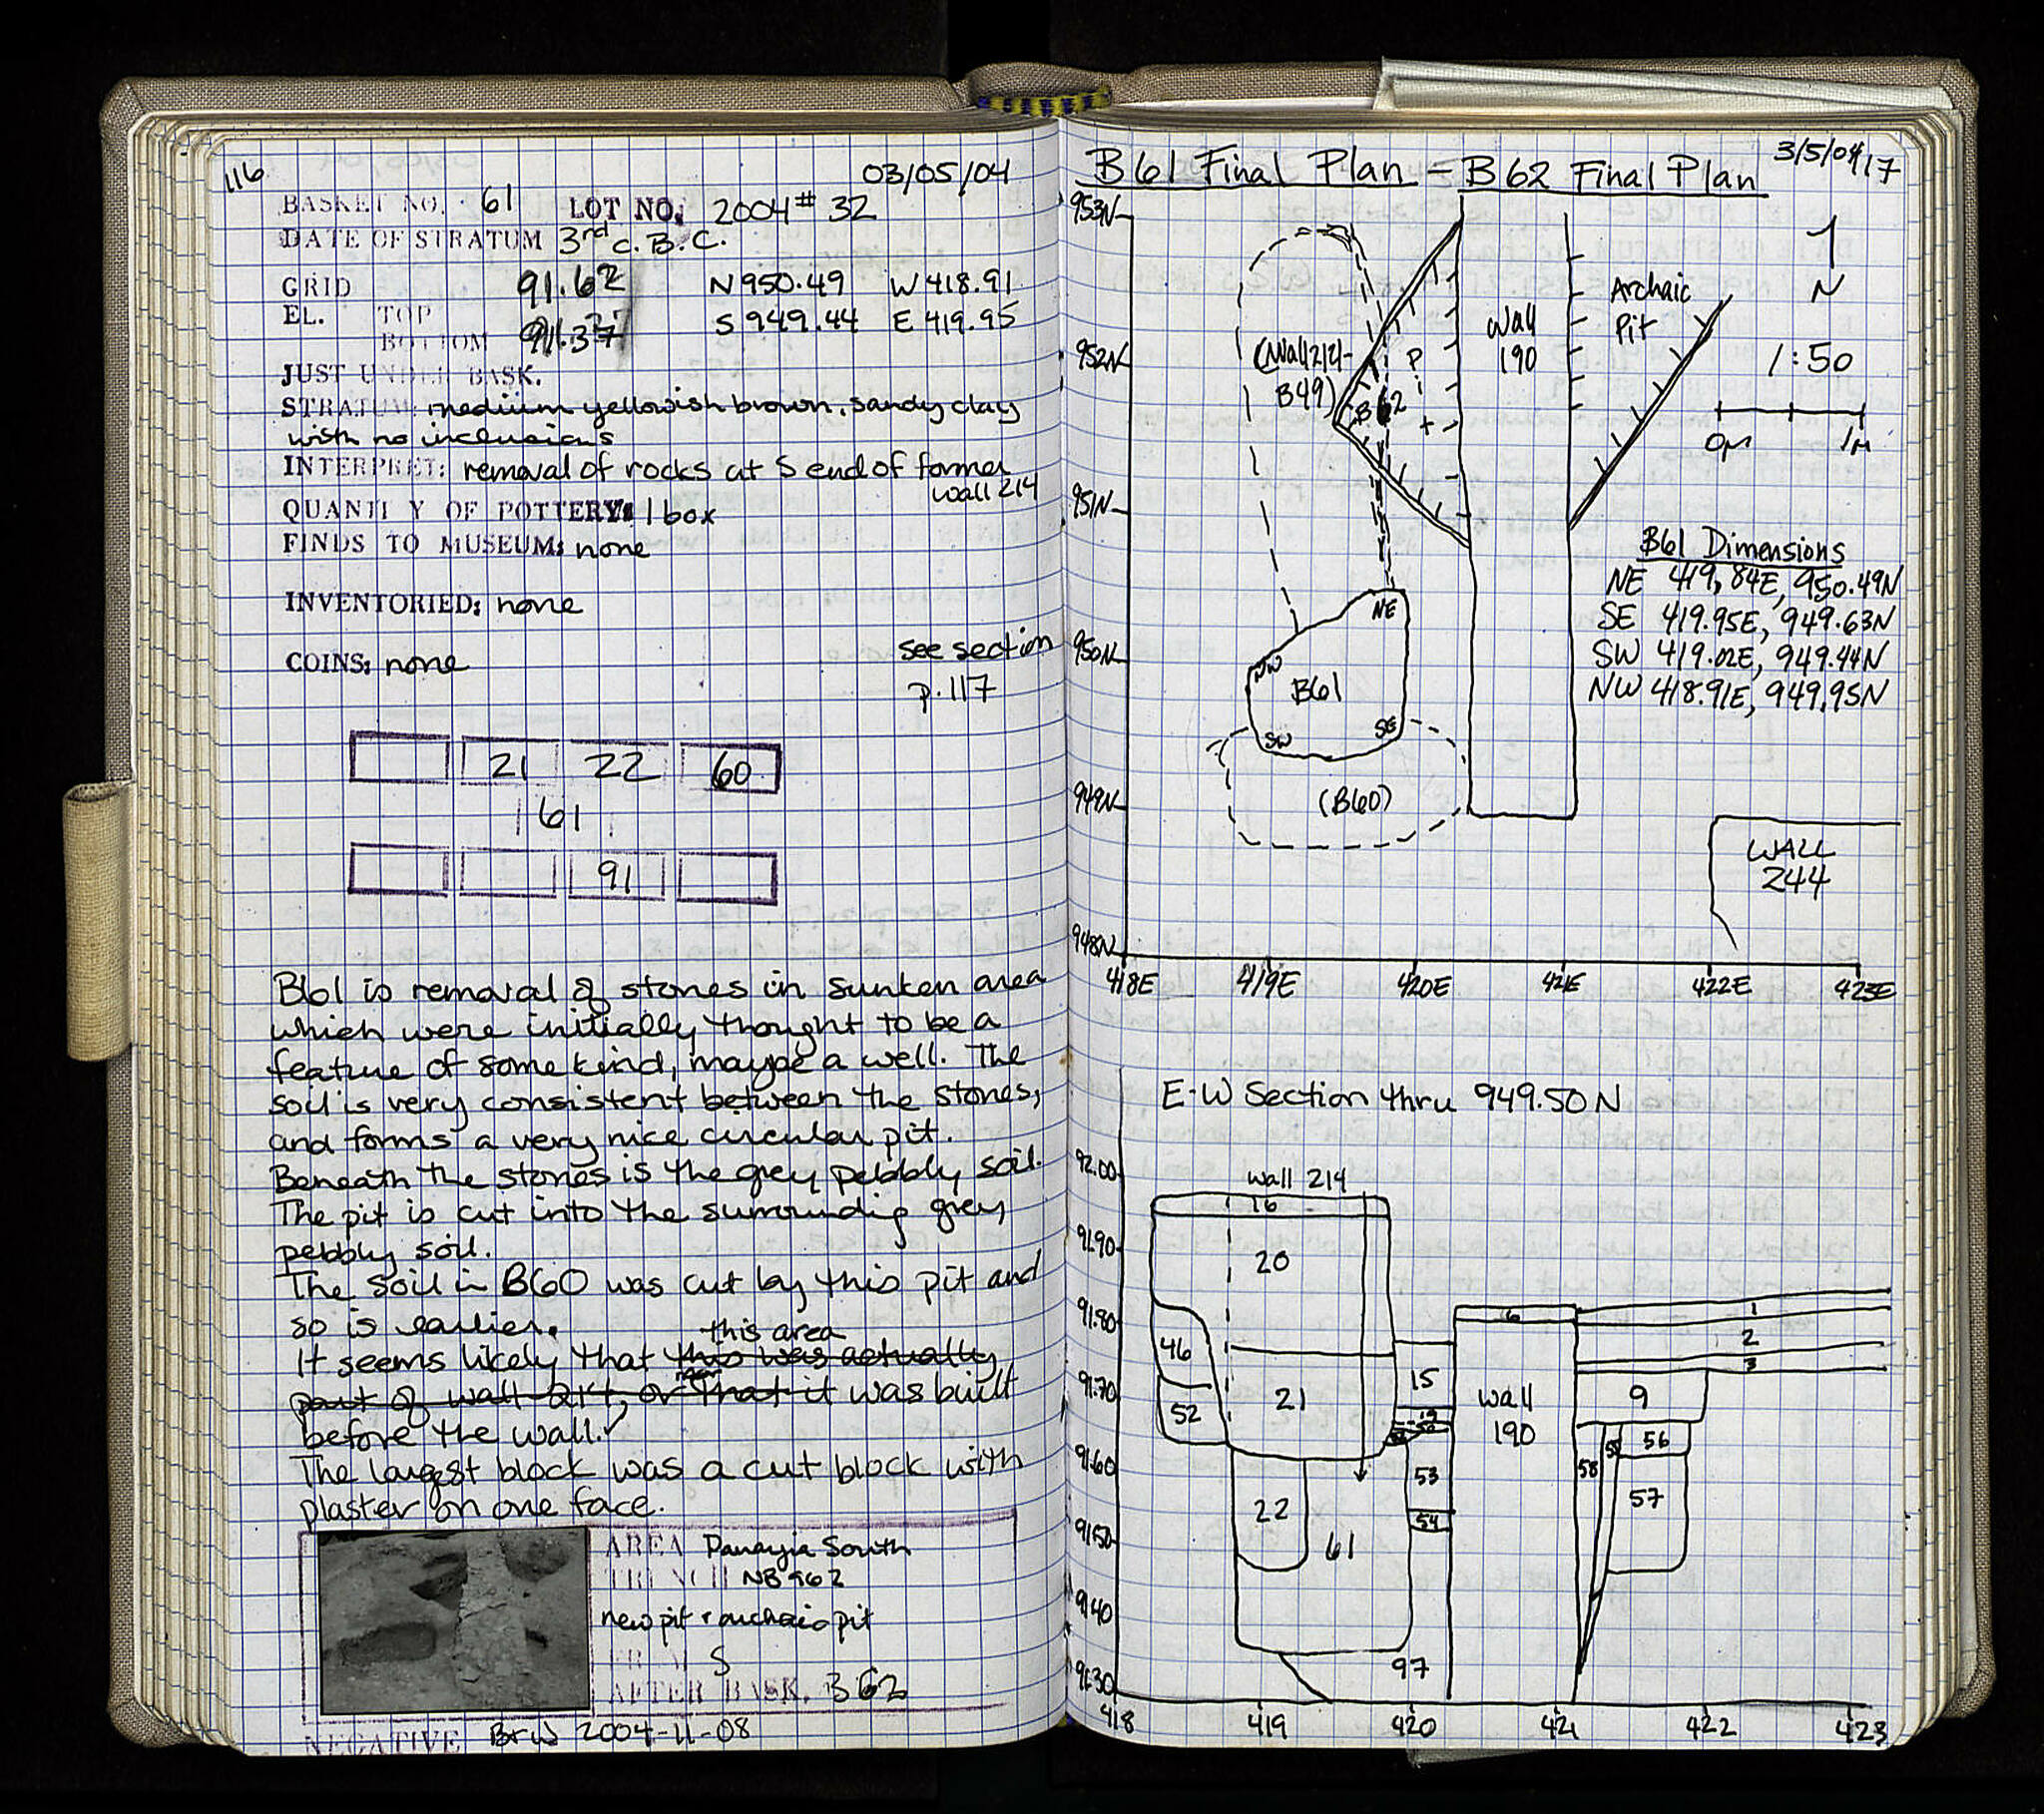 116
03/05/04
BASKET NO. 61 LOT NO. 2004#32
DATE OF STRATUM 3rd c. B.C.
GRID 91.62 N950.49 W418.91
EL. TOP S949.44 E419.95
BOTTOM 91.37
JUST UNDER BASK.
STRATUM: medium yellowish brown, sandy clay
with no inclusions
INTERPRET: removal of rocks at S end of former
wall 214
QUANTI Y OF POTTERY: 1 box
FINDS TO MUSEUM: none
INVENTORIED: none
COINS: none
see section
p.117
21 22 60
61
91
B61 is removal of stones in sunken area
which were initially thought to be a
feature of some kind, maybe a well. The
soil is very consistent between the stones,
and forms a very nice circular pit.
Beneath the stones is the grey pebbly soil.
The pit is cut into the surrounding grey
pebbly soil.
The soil in B60 was cut by this pit and
so is earlier.
this area
It seems likely that this was actually
part of wall 214, or that it was built
before the wall. ✓
The largest block was a cut block with
plaster on one face.
AREA Panayia South
TRENCH NB962
new pit + archaic pit
FROM S
AFTER BASK. B62
NEGATIVE B+W 2004-11-08
B61 Final Plan - B62 Final Plan
3/5/04
117
953N
952N
951N
950N
949N
948N
418E 419E 420E 421E 422E 423E
(Wall 214-
B49)
B62
Pit
Wall
190
Archaic
Pit
N
1:50
0M 1M
B61 Dimensions
NE 419.84E, 950.49N
SE 419.95E, 949.63N
SW 419.02E, 949.44N
NW 418.91E, 949.95N
NE
NW
B61
SE
SW
(B60)
WALL
244
E-W Section thru 949.50N
92.00
91.90
91.80
91.70
91.60
91.50
91.40
91.30
wall 214
16
20
46
52
21
22
61
97
15
53
54
6
wall
190
1
2
3
9
56
58
57
418 419 420 421 422 423